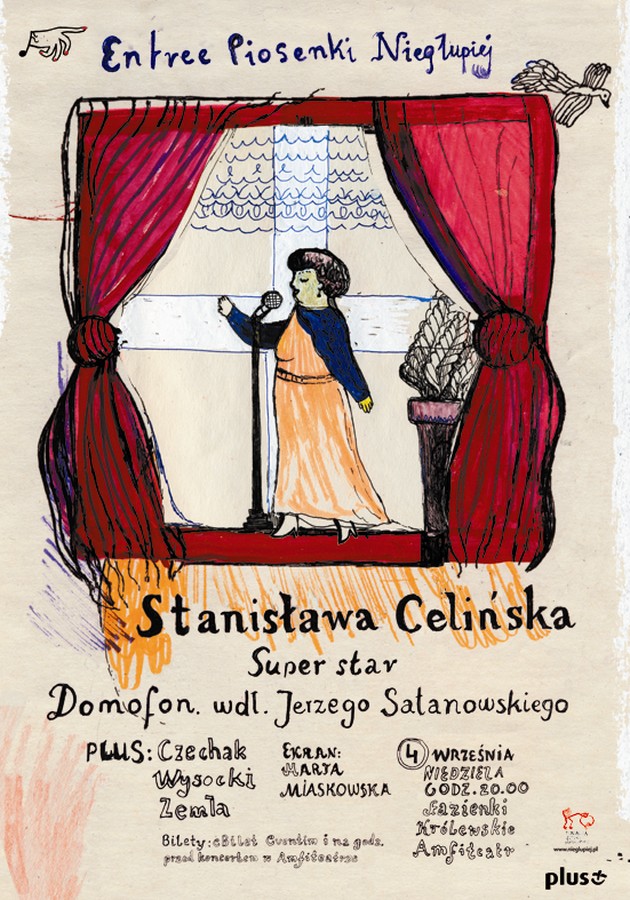 Entree Piosenki Niegłupiej
Stanisława Celińska
Super star
Domofon. wdl. Jerzego Satanowskiego
PLUS: Czechak
Wysocki
Zemła
EKRAN:
MARTA
MIASKOWSKA
4 WRZEŚNIA
NIEDZIELA
GODZ. 20.00
Łazienki
Królewskie
Amfiteatr
Bilety: eBilet Eventim i na godz.
przed koncertem w Amfiteatrze
www.nieglupiej.pl
plus